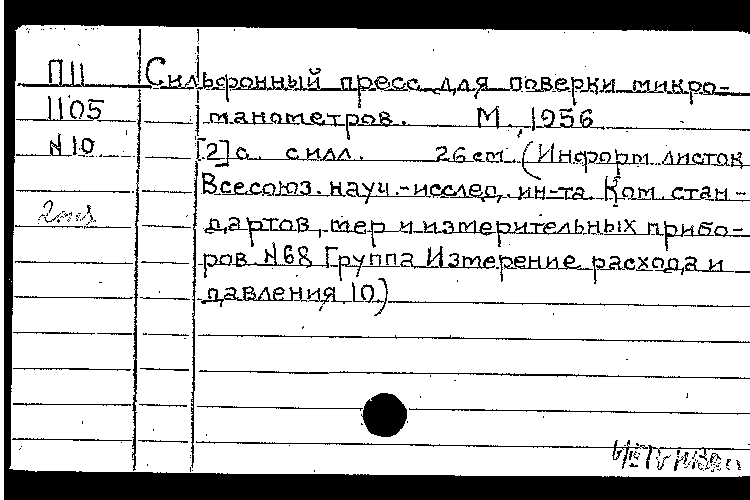 П11 Сильфонный пресс для поверки микро-
1105 манометров. М., 1956
N10 [2] с. с илл. 26 см. (Информ. листок
Всесоюз. науч.-исслед. ин-та Ком. стан-
дартов, мер и измерительных прибо-
ров. N68 Группа Измерение расхода и
давления 10.)